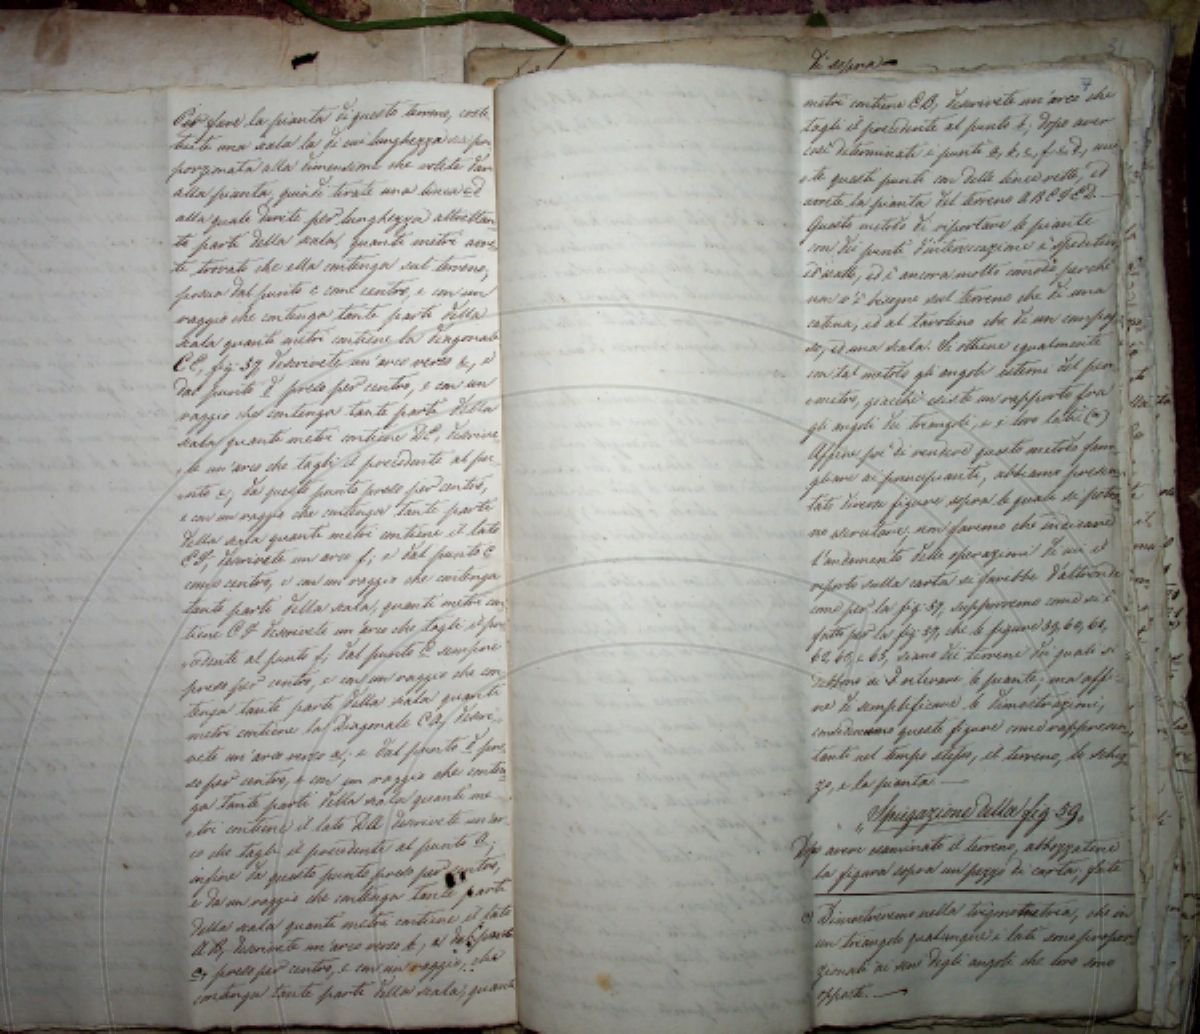 Per fare la pianta di questo terreno, costi-
tuite una scala la di cui lunghezza sia pro
porzionata alla dimensione che volete dar
alla pianta, quindi tirate una linea ed
alla quale darete per lunghezza altrettan-
te parti della scala, quanti metri avre-
te trovato che ella contenga sul terreno,
poscia dal punto c come centro, e con un
raggio che contenga tante parti della
scala quanti metri contiene la diagonale
CE, fig. 57 descrivete un'arco verso e, e
dal punto d preso per centro, e con un
raggio che contenga tante parti della
scala quanti metri contiene DE, descrive-
te un'arco che tagli il precedente al pu-
nto e; da questo punto preso per centro,
e con un raggio che contenga tante parti
della scala quanti metri contiene il lato
EF, descrivete un arco f; e dal punto C
come centro, e con un raggio che contenga
tante parti della scala, quanti metri con-
tiene CF descrivete un'arco che tagli il pre-
cedente al punto f; dal punto C sempre
preso per centro, e con un raggio che con
tenga tante parti della scala quanti
metri contiene la Diagonale CA, descri-
vete un'arco verso a; e dal punto d pre-
so per centro, e con un raggio che conten-
ga tante parti della scala quanti me
tri contiene il lato DA descrivete un'ar-
co che tagli il precedente al punto a;
infine da questo punto preso per centro,
e da un raggio che contenga tante parti
della scala quanti metri contiene il lato
AB, descrivete un'arco verso b, e dal punto
c, preso per centro, e con un raggio, che
contenga tante parti della scala, quanti
di sopra
7
metri contiene CB, descrivete un'arco che
tagli il precedente al punto b; dopo aver
così determinati i punti a, b, e, f, c, d, uni
te questi punti con delle linee rette, ed
avrete la pianta del terreno
Questo metodo di riportare le piante
con dei punti d'intersecazione è speditivo,
ed esatto, ed è ancora molto comodo perchè
non v'è bisogno sul terreno che di una
catena, ed al tavolino che di un compas
so, ed una scala. Si ottiene egualmente
con tal metodo gli angoli esterni del peri
metro, giacchè esiste un rapporto fra
gli angoli dei triangoli, e i loro lati (a)
Affine poi di rendere questo metodo fami
gliare ai principianti, abbiamo presen
tato diverse figure sopra le quali si potran
no esercitare. non faremo che indicare
l'andamento delle operazioni di cui il
riporto sulla carta si farebbe d'altronde
come per la fig. 57, supporremo come si è
fatto per la fig: 57, che le figure 59, 60, 61,
62, e 63, siano dei terreni dei quali si
debbono rilevare le piante; ma affi-
ne di semplificare le dimostrazioni,
considereremo queste figure come rappresen
tanti nel tempo stesso, il terreno, lo schiz
zo, e la pianta.
Spiegazione della fig 59.
Dopo avere esaminato il terreno, abbozzatene
la figura sopra un pezzo di carta, fate
(a) Dimostreremo nella trigonometria, che in
un triangolo qualunque i lati sono propor
zionali ai seni degli angoli che loro sono
opposti.